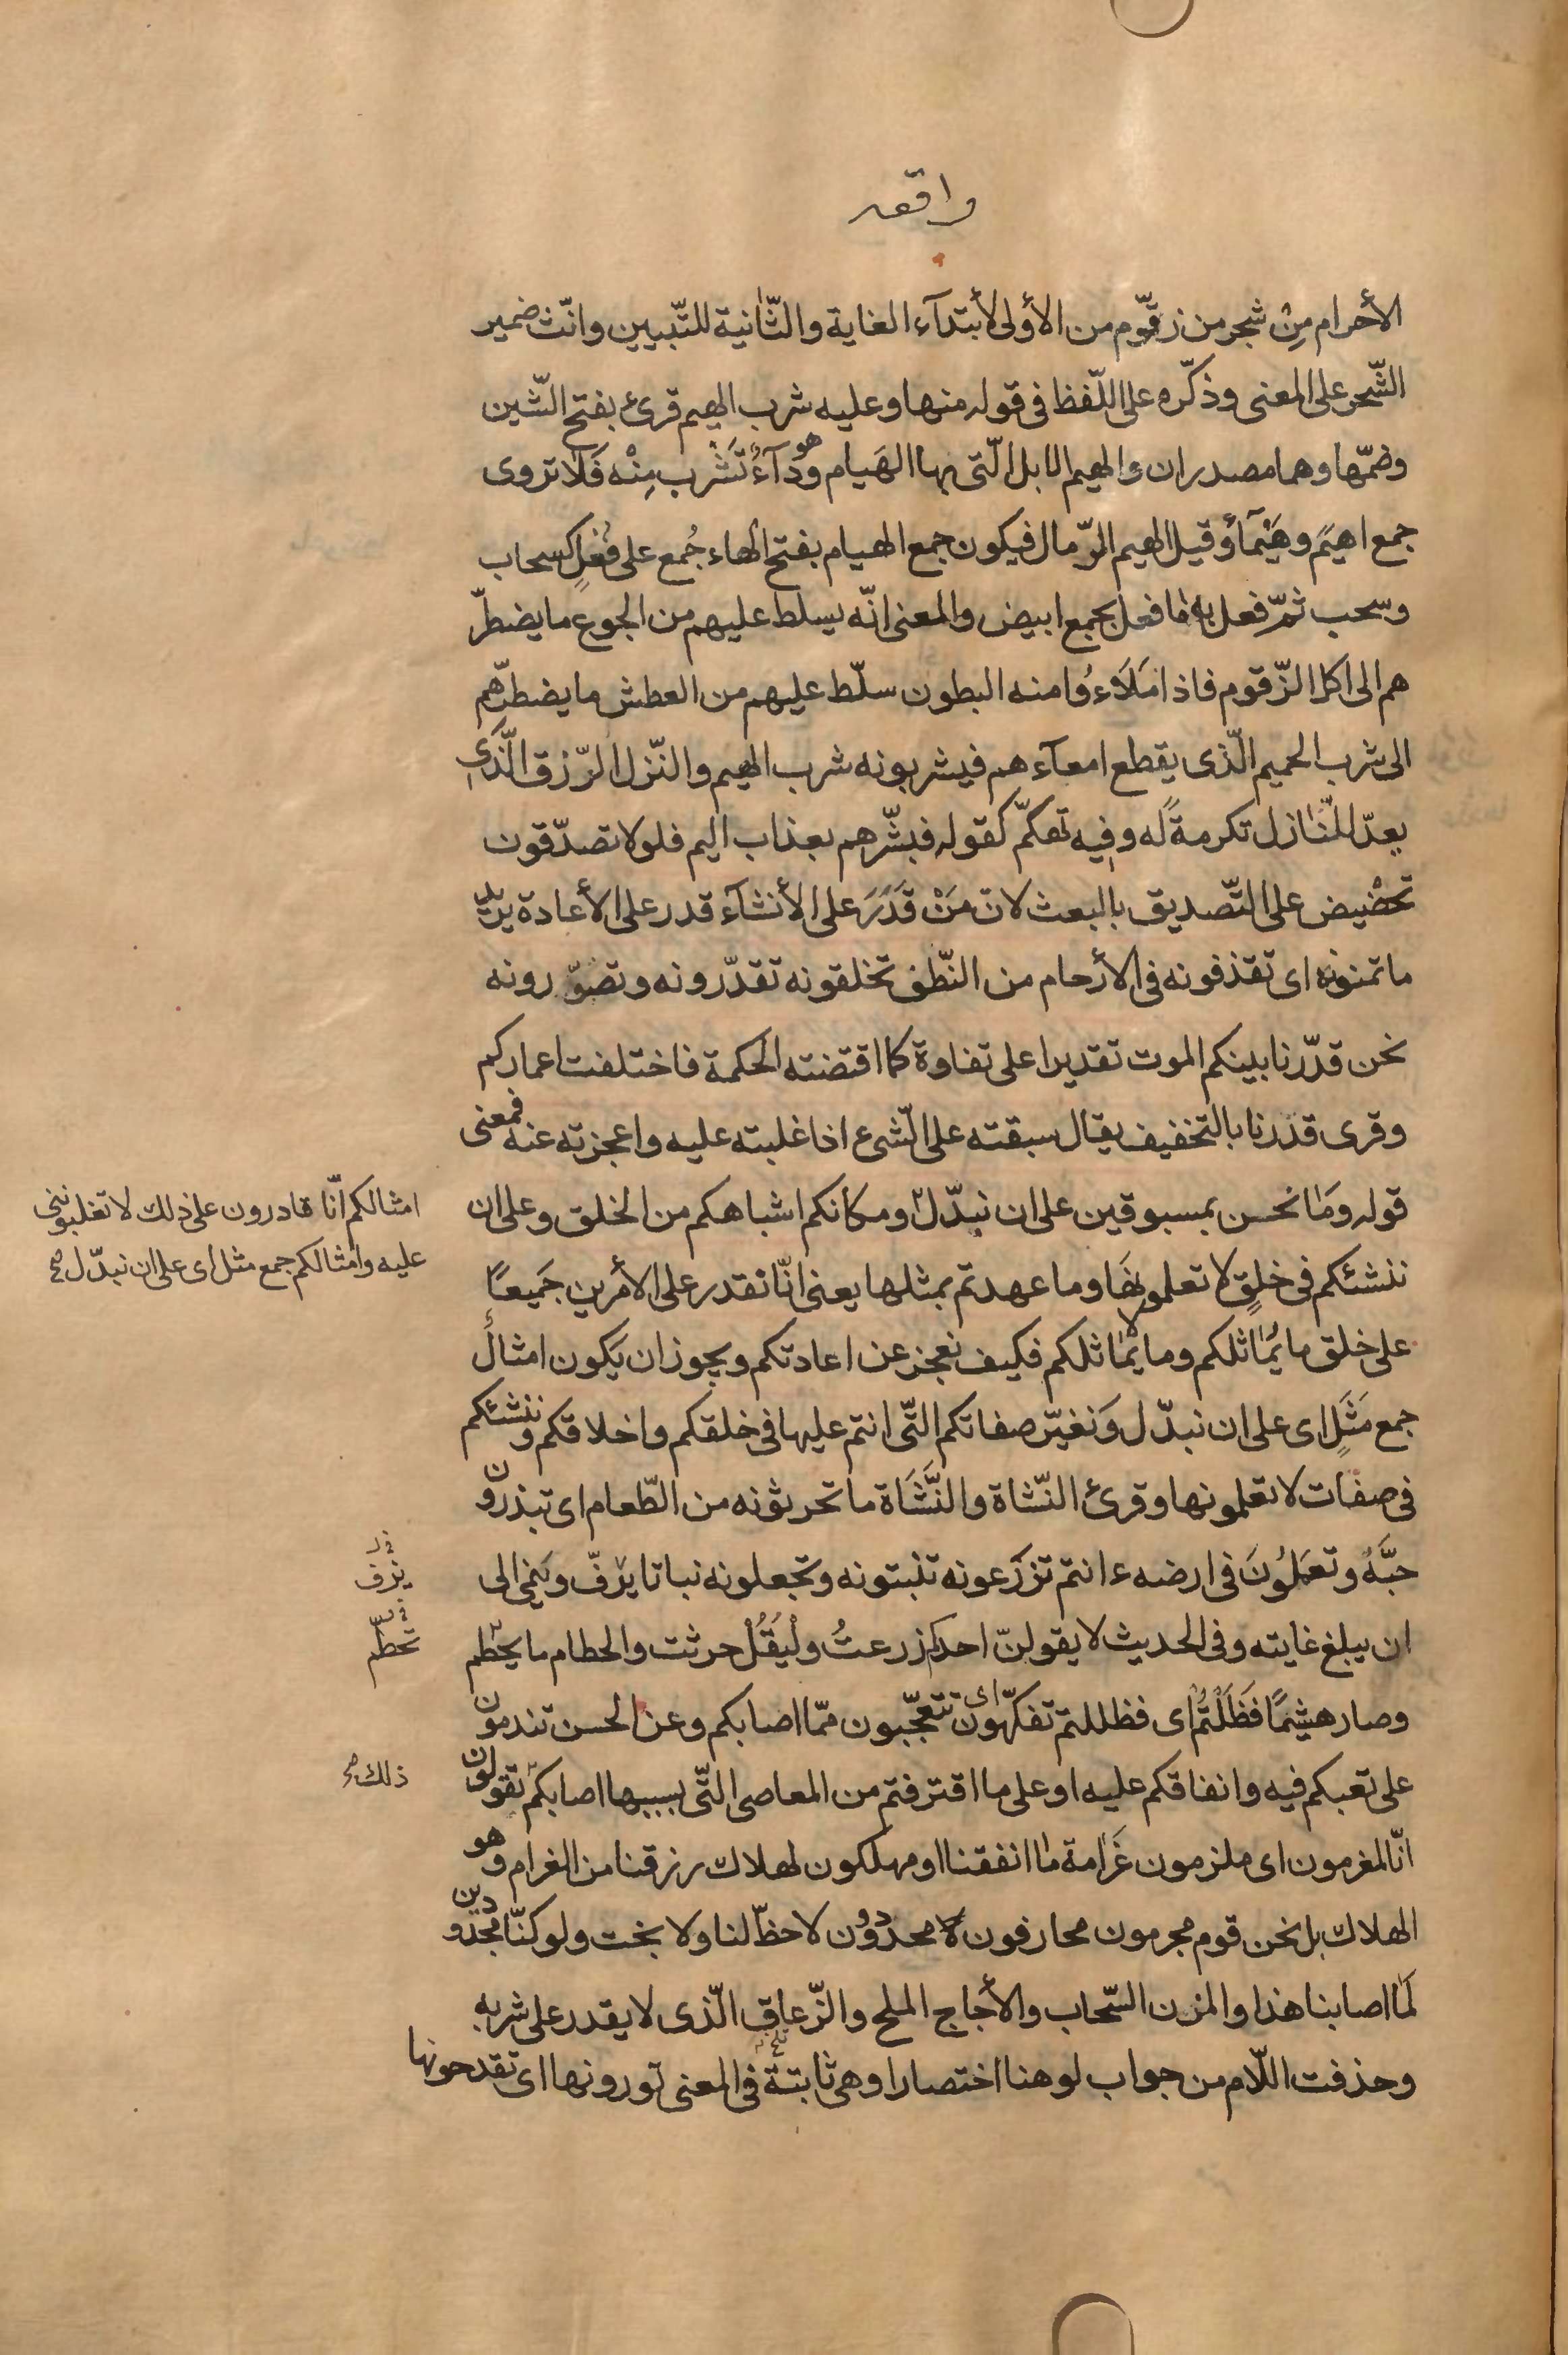 واقعه
الأحرام مِنْ شجر من زقّوم من الأولى لأبتدآء الغاية والثّانية للتّبيين وانّث ضمير
الشّجر على المعنى وذكّره على اللّفظ فى قوله منها وعليه شرب الهيم قرئ بفتح الشّين
وضمّها وهما مصدران والهيم الابل الّتى بها الهَيام وهو دآءٌ تَشْرب مِنْه فَلا تروى
جمع اهيَم وهَيْمآء وقيل الهيم الرّمال فيكون جمع الهيام بفتح الهاء جُمع على فُعُلٍ كسحاب
وسحب ثمّ فعل به ما فعل بجمع ابيض والمعنى انّه يسلط عليهم من الجوع ما يضطرّ
هم الى اكل الزّقوم فاذا مَلَاَءُوا منه البطون سلّط عليهم من العطش ما يضطرّهم
الى شرب الحميم الّذى يقطع امعآءهم فيشربونه شرب الهيم والنّزل الرّزق الّذى
يعدّ للنّازل تكرمةً له وفيه تهكمّ كقوله فبشّرهم بعذاب اليم فلولا تصدّقون
تحْضيض على التّصديق بالبعث لانّ مَنْ قَدَرَ على الأنشآء قدر على الأعادة يريد
ما تمنونه اى تقذفونه فى الأرحام من النّطف تخلقونه تقدّرونه وتصوّرونه
نحن قدّرنا بينكم الموت تقديرا على تفاوة كما اقتضته الحكمة فاختلفت اعماركم
وقرى قدَرنا بالتخفيف يقال سبقته على الشّىء اذا غلبته عليه واعجزته عنه فمعنى
قوله وَمَا نحن بمسبوقين على ان نبدّل ومكانكم اشباهكم من الخلق وعلى ان
امثالكم انّا قادرون على ذلك لا تغلبوننى
عليه وامثالكم جمع مثل اى على ان نبدّل صح
ننشئكم فى خلقٍ لا تعلمونها وما عهدتم بمثلها يعنى انّا نقدر على الأمرين جَميعًا
على خلق ما يُماثلكم وما لا يُماثلكم فكيف نعجز عن اعادتكم ويجوز ان يَكون امثالُ
جمع مَثَلٍ اى على ان نبدّل وَنغيّر صفاتكم الّتى انتم عليها فى خلقكم واخلاقكم وننشئكم
فى صفات لا تعلمونها وقرئ النّشاة والنَّشَاة ما تحرثونه من الطّعام اى تبذرون
حبَّهُ وتعمَلُونَ فى ارضه ءانتم تزرَعونه تنبتونه وتجعلونه نباتا يَرفّ ويَنمِى الى
يرف
ان يبلغ غايته وفى الحديث لا يقولنّ احدكم زرعتُ ولْيَقُلْ حرثت والحطام ما يحطم
تحطّم
وصار هشيمًا فَظَلْتُم اى فظللتم تفكّهون اى تتعجّبون ممّا اصابكم وعن الحسن تندمون
على تعبكم فيه وانفاقكم عليه او على ما اقترفتم من المعاصى الّتى بسببها اصابكم تقولون
ذلك صح
انّا لمغرمون اى ملزمون غَرَامة ما انفقنا او مهلكون لهلاك رزقنا من الغرام وهو
الهلاك بل نحن قوم مجرمون محارفون لا محدودون لا حظّ لنا ولا بخت ولو كنّا مجدودين
لمَا اصابنا هذا والمزن السّحاب والأجاج الملح والزّعاق الّذى لا يقدر على شربه
وحذفت اللّام من جواب لو هنا اختصارا وهى ثابتة فى المعنى تورونها اى تقدحونها